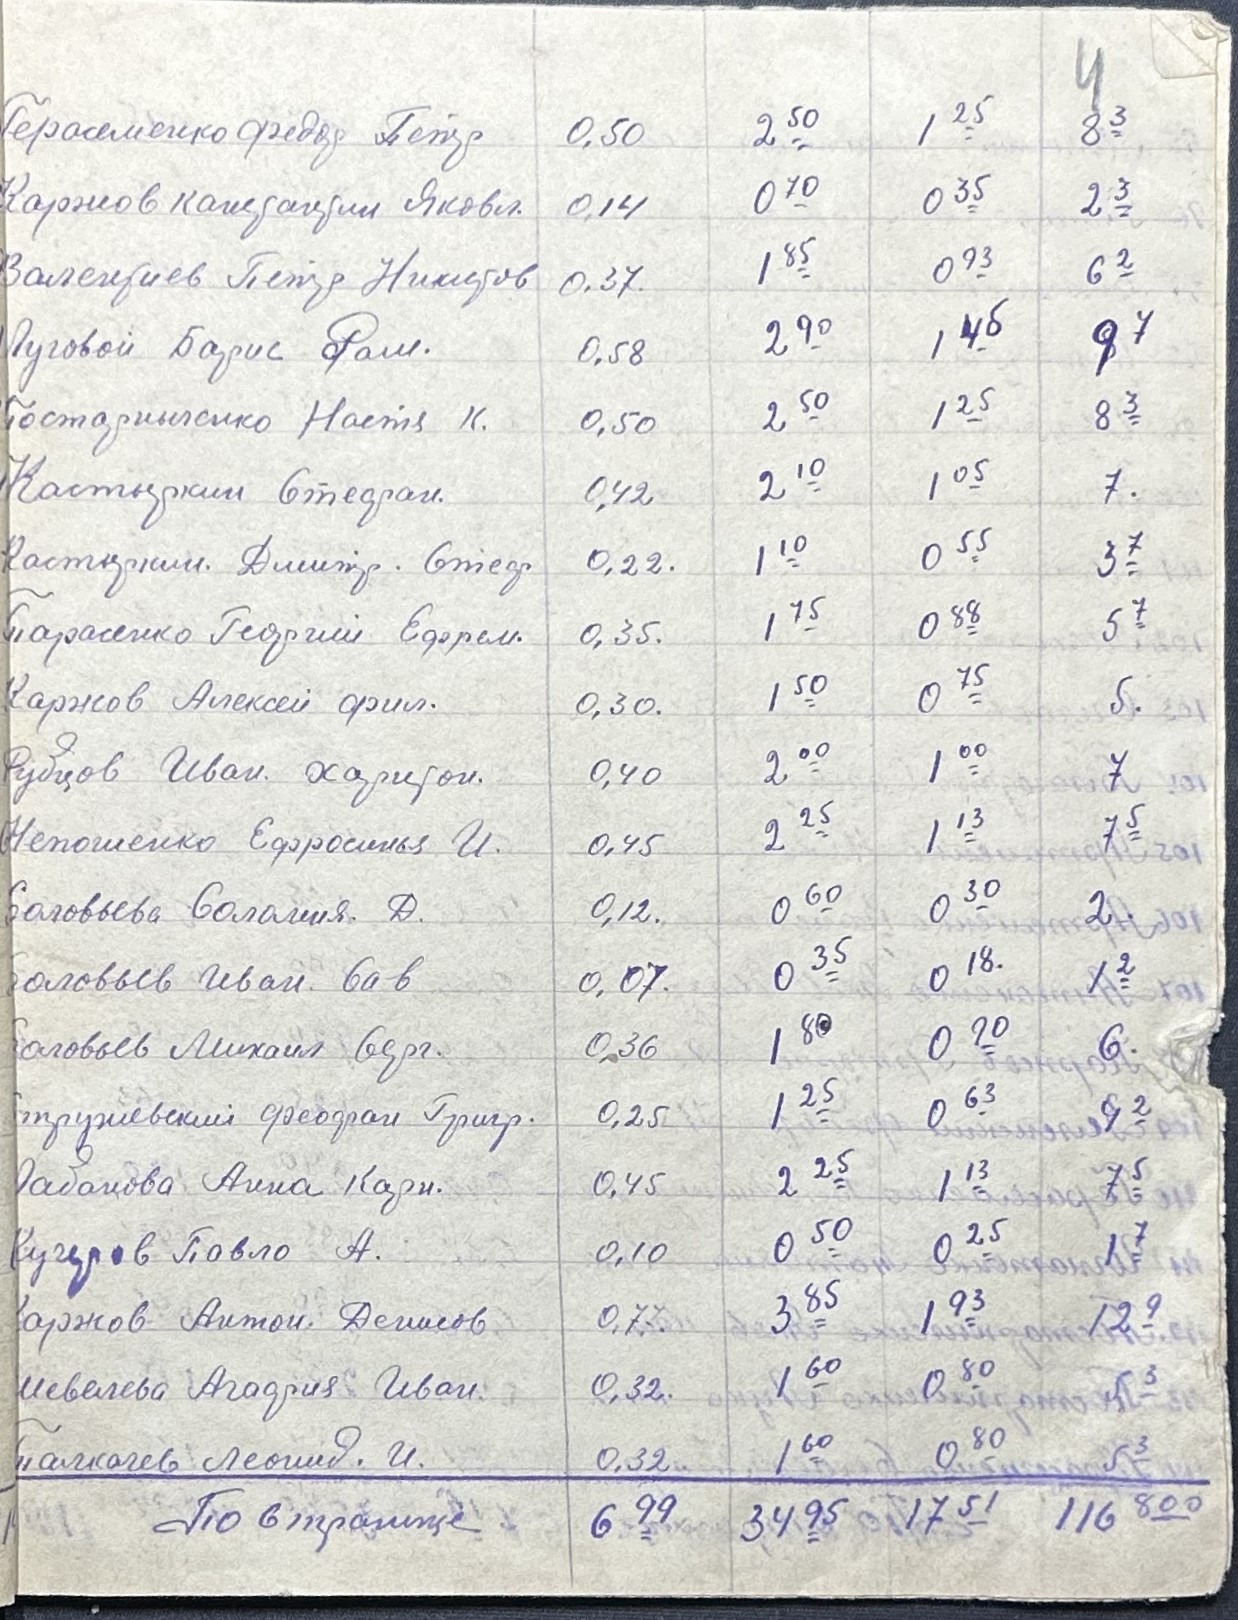 4
Герасеменко Федор Петр 0,50 2 50 1 25 8 3
Каржов Канстантин Яковл. 0,14 0 70 0 35 2 3
Валентиев Петр Никитов 0,37. 1 85 0 93 6 2
Луговой Барис Фом. 0,58 2 90 1 45 9 7
Костарниченко Настя К. 0,50 2 50 1 25 8 3
Кастыркин Стефан. 0,42 2 10 1 05 7.
Кастыркин. Дмитр. Стеф. 0,22. 1 10 0 55 3 7
Тарасенко Георгий Ефрем. 0,35. 1 75 0 88 5 7
Каржов Алексей Фил. 0,30. 1 50 0 75 5.
Рубцов Иван. Харитон. 0,40 2 00 1 00 7
Непошенко Ефросинья И. 0,45 2 25 1 13 7 5
Соловьева Соломия. Д. 0,12. 0 60 0 30 2.
Соловьев Иван. Сав 0,07. 0 35 0 18. 1 2
Соловьев Михаил Серг. 0,36 1 80 0 90 6.
Феофан Григр. 0,25 1 25 0 63 4 2
Лабакова Анна Карн. 0,45 2 25 1 13 7 5
Кучеров Павло А. 0,10 0 50 0 25 1 7
Каржов Антон. Денисов 0,77. 3 85 1 93 12 9.
Шевелева Агафия Иван. 0,32. 1 60 0 80 5 3
Талкачев Леонид. И. 0,32 1 60 0 80 5 3
По странице 6 99 34 95 17 51 116 800